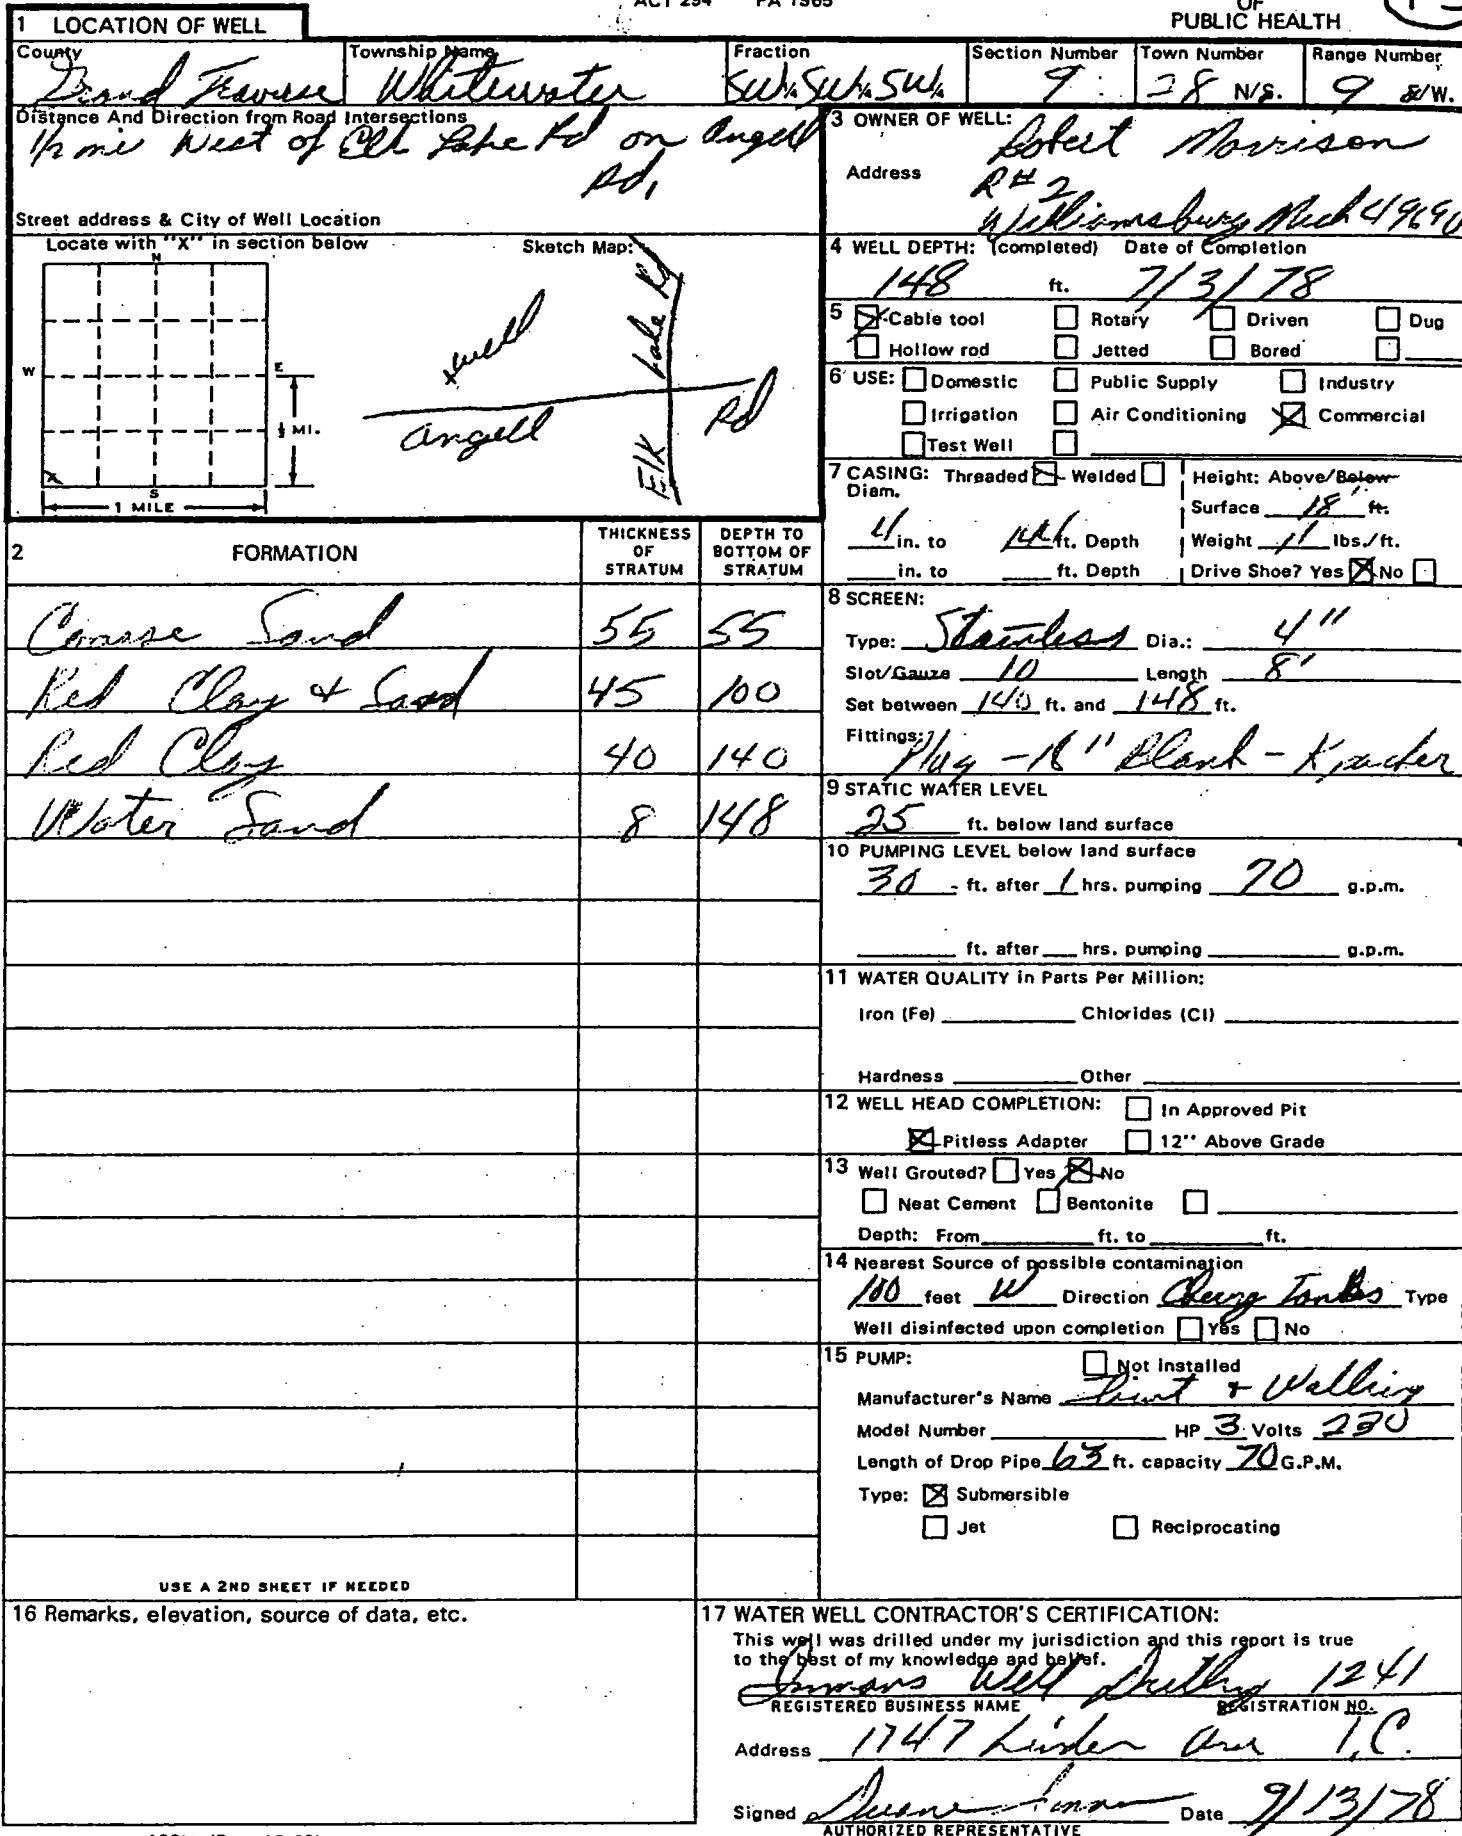 ACT 294 PA 1965
OF
PUBLIC HEALTH
1 LOCATION OF WELL
County Grand Traverse
Township Name Whitewater
Fraction SW¼ SW¼ SW¼
Section Number 9
Town Number 28 N/S.
Range Number 9 E/W.
Distance And Direction from Road Intersections
1/2 mi West of Elk Lake Rd on Angell
Rd,
Street address & City of Well Location
Locate with "X" in section below
Sketch Map:
N
W
E
S
X
½ MI.
1 MILE
x well
Angell Rd
Elk Lake Rd
2 FORMATION
THICKNESS OF STRATUM
DEPTH TO BOTTOM OF STRATUM
Coarse Sand 55 55
Red Clay & Sand 45 100
Red Clay 40 140
Water Sand 8 148
USE A 2ND SHEET IF NEEDED
3 OWNER OF WELL: Robert Morrison
Address R# 2
Williamsburg Mich 49690
4 WELL DEPTH: (completed) Date of Completion
148 ft. 7/3/78
5 Cable tool Rotary Driven Dug
Hollow rod Jetted Bored
6 USE: Domestic Public Supply Industry
Irrigation Air Conditioning Commercial
Test Well
7 CASING: Threaded Welded
Diam.
4 in. to ft. Depth
in. to ft. Depth
Height: Above/Below
Surface 18" ft.
Weight 11 lbs./ft.
Drive Shoe? Yes No
8 SCREEN:
Type: Stainless Dia.: 4"
Slot/Gauze 10 Length 8'
Set between 140 ft. and 148 ft.
Fittings: Plug - 18" Blank - K packer
9 STATIC WATER LEVEL
25 ft. below land surface
10 PUMPING LEVEL below land surface
30 ft. after 1 hrs. pumping 70 g.p.m.
ft. after hrs. pumping g.p.m.
11 WATER QUALITY in Parts Per Million:
Iron (Fe) Chlorides (Cl)
Hardness Other
12 WELL HEAD COMPLETION: In Approved Pit
Pitless Adapter 12" Above Grade
13 Well Grouted? Yes No
Neat Cement Bentonite
Depth: From ft. to ft.
14 Nearest Source of possible contamination
100 feet W Direction Cherry Tanks Type
Well disinfected upon completion Yes No
15 PUMP: Not installed
Manufacturer's Name Flint & Walling
Model Number HP 3 Volts 230
Length of Drop Pipe 63 ft. capacity 70 G.P.M.
Type: Submersible
Jet Reciprocating
16 Remarks, elevation, source of data, etc.
17 WATER WELL CONTRACTOR'S CERTIFICATION:
This well was drilled under my jurisdiction and this report is true
to the best of my knowledge and belief.
Inmans Well Drilling 1241
REGISTERED BUSINESS NAME REGISTRATION NO.
Address 1747 Linden Ave T.C.
Signed Duane Inman Date 9/13/78
AUTHORIZED REPRESENTATIVE